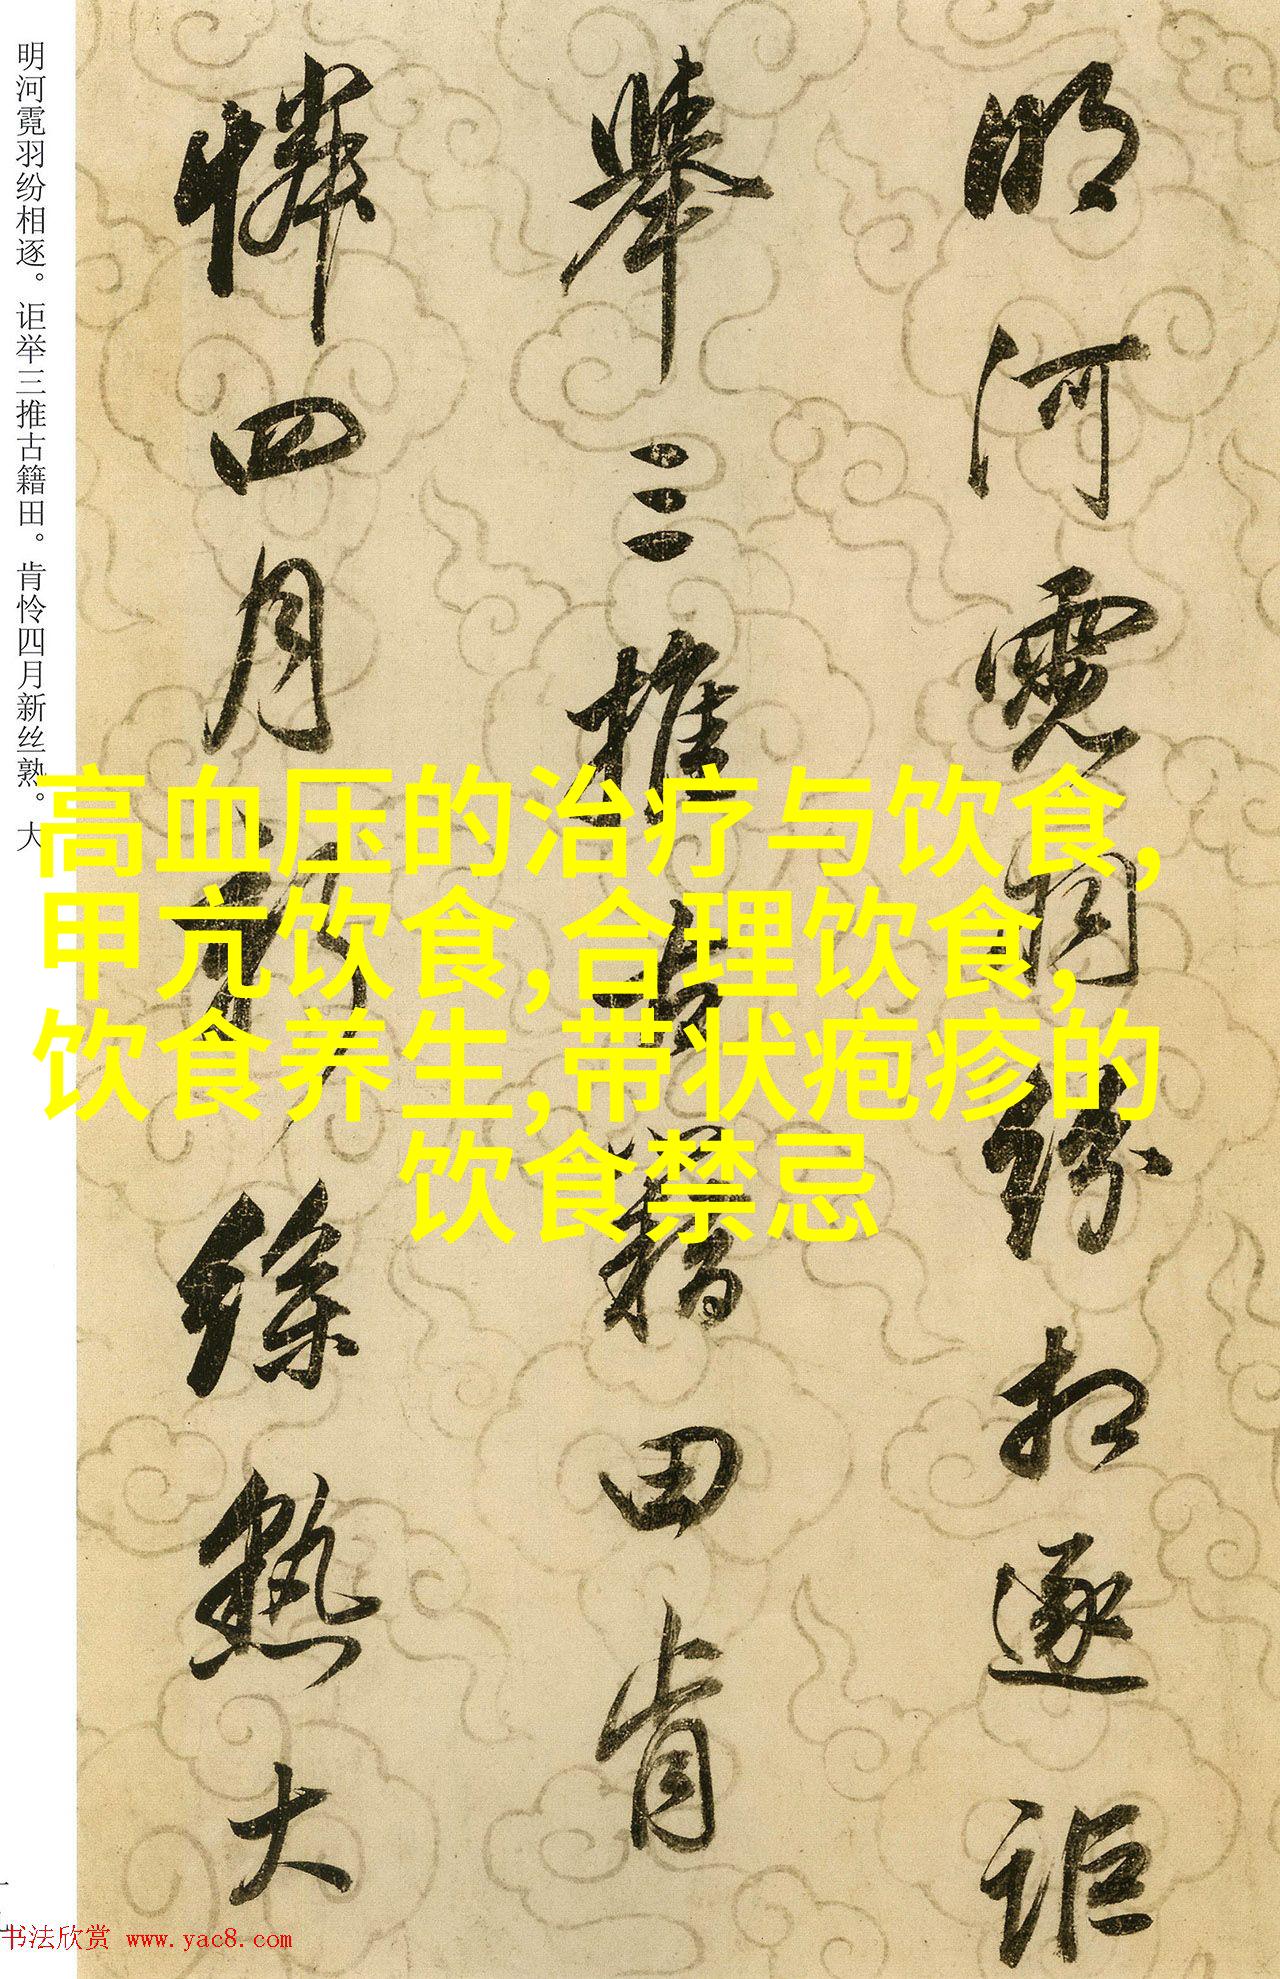 明河霓羽纷相逐。讵举三推古籍田。肯怜四月新丝熟。大
明河霓羽紛相逐詎
舉三推古籍田肯
憐四月新絲熟大
高血压的治疗与饮食,
甲亢饮食,合理饮食,
饮食养生,带状疱疹的
饮食禁忌
书法欣赏 www.yac8.com